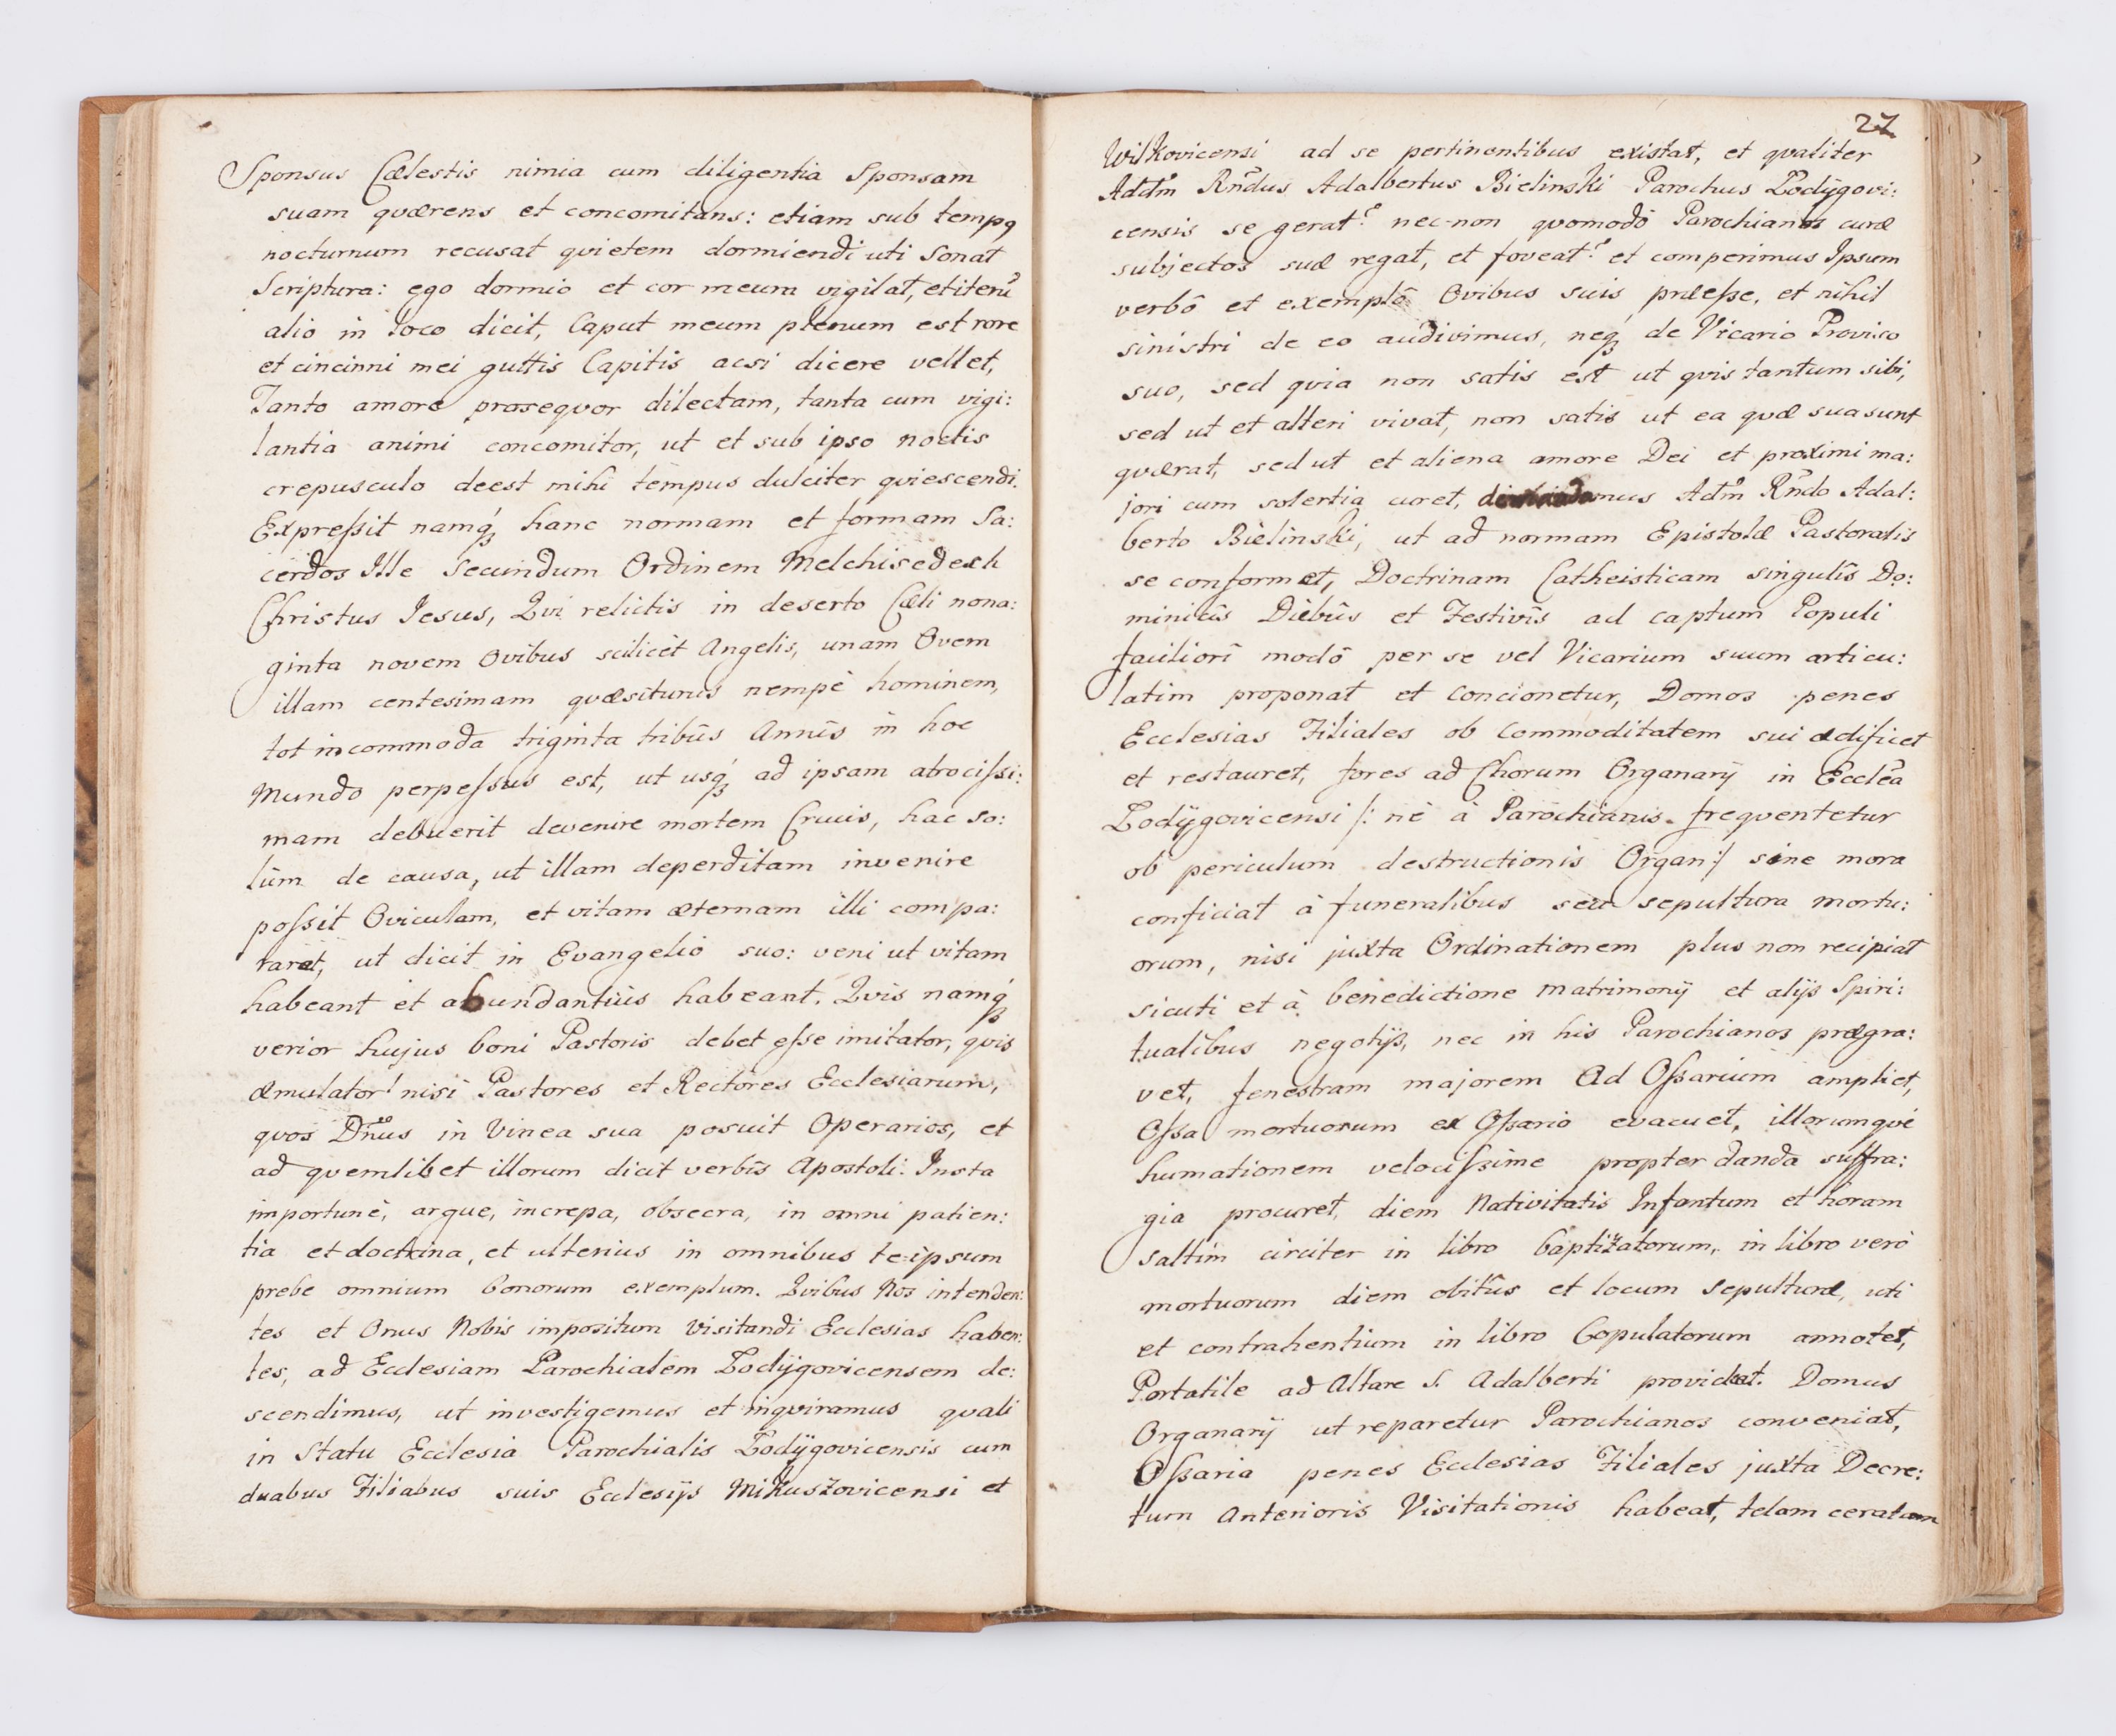 Sponsus Cælestis nimia cum diligentia Sponsam
suam quærens et concomitans: etiam sub tempq
nocturnum recusat quietem dormiendi uti Sonat
Scriptura: ego dormio et cor meum vigilat, et iterũ
alio in loco dicit, Caput meum plenum est rore
et cincinni mei guttis Capitis acsi dicere vellet,
Tanto amore prosequor dilectam, tanta cum vigi:
lantia animi concomitor, ut et sub ipso noctis
crepusculo deest mihi tempus dulciter quiescendi.
Expreſsit namq́; hanc normam et formam Sa:
cerdos Ille Secundum Ordinem Melchisedech
Christus Jesus, Qvi relictis in deserto Cæli nona:
ginta novem Ovibus scilicèt Angelis, unam Ovem
illam centesimam quæsiturus nempè hominem,
tot incommoda triginta tribûs Annîs in hoc
Mundo perpeſsus est, ut usq́; ad ipsam atrociſsi:
mam debuerit devenire mortem Crucis, hac so:
lùm de causa, ut illam deperditam invenire
poſsit Oviculam, et vitam æternam illi compa:
raret, ut dicit in Evangelio suo: veni ut vitam
habeant et abundantiùs habeant. Qvis namq́;
verior hujus boni Pastoris debet eſse imitator, qvis
æmulator! nisi Pastores et Rectores Ecclesiarum,
quos Dñus in Vinea sua posuit Operarios, et
ad quemlibet illorum dicit verbîs Apostoli: Insta
importunè, argue, increpa, obsecra, in omni patien:
tia et doctrina, et ulterius in omnibus te=ipsum
prebe omnium bonorum exemplum. Qvibus Nos intenden:
tes et Onus Nobis impositum Visitandi Ecclesias haben:
tes, ad Ecclesiam Parochialem Łodÿgovicensem de:
scendimus, ut investigemus et inqviramus quali
in Statu Ecclesia Parochialis Łodÿgovicensis cum
duabus Filiabus suis Ecclesijs Mikuszovicensi et
27
Wilkovicensi ad se pertinentibus existat, et qvaliter
Adm̃ Rñdus Adalbertus Bielinski Parochus Łodÿgovi:
censis se gerat? nec-non qvomodò Parochianos curæ
subjectos suæ regat, et foveat? et comperimus Ipsum
verbô et exemplô Ovibus suis præeſse, et nihil
sinistri de eo audivimus, neq́; de Vicario Proviso
suo, sed qvia non satis est ut qvis tantum sibi,
sed ut et alteri vivat, non satis ut ea quæ sua sunt
quærat, sed ut et aliena amore Dei et proximi ma:
jori cum solertia curet, Adm̃ Rñdo Adal:
berto Bielinski, ut ad normam Epistolæ Pastoralis
se conformet, Doctrinam Catheisticam singulîs Do:
minicîs Diebûs et Festivîs ad captum Populi
faciliorî modô per se vel Vicarium suum articu:
latim proponat et concionetur, Domos penes
Ecclesias Filiales ob Commoditatem sui ædificet
et restauret, fores ad Chorum Organarÿ in Eccl̃ea
Łodÿgovicensi /: nè à Parochianis frequentetur
ob periculum destructionis Organ:/ sine mora
conficiat à funeralibus seu sepultura mortu:
orum, nisi juxta Ordinationem plus non recipiat
sicuti et à benedictione matrimonÿ et alÿs Spiri:
tualibus negotÿs, nec in his Parochianos prægra:
vet, fenestram majorem Ad Oſsarium ampliet,
Oſsa mortuorum ex Oſsario evacuet, illorumqvè
humationem velociſsime propter danda suffra:
gia procuret, diem Nativitatis Infantum et horam
saltim circiter in libro baptizatorum, in libro verò
mortuorum diem obitûs et locum sepulturæ, uti
et contrahentium in libro Copulatorum annotet,
Portatile ad Altare S. Adalberti provideat. Domus
Organarÿ ut reparetur Parochianos conveniat,
Oſsaria penes Ecclesias Filiales juxta Decre:
tum Anterioris Visitationis habeat, telam ceratam